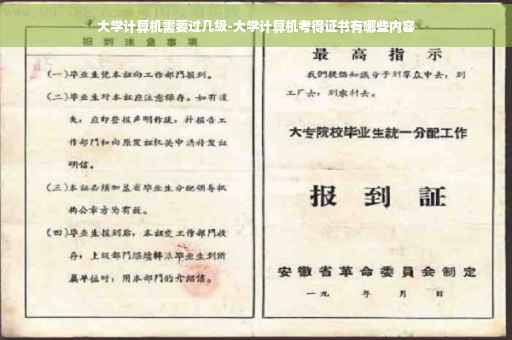 大学计算机需要过几级-大学计算机考得证书有哪些内容
报到注意事项
(一)毕业生凭本证向工作部门报到。
(二)毕业生对本证应注意保存。如有遗
失，应即登报声明作废，并报告工
作部门和向原发证机关申请补发证
明信。
(三)本证必须加盖省毕业生分配领导机
构公章方为有效。
(四)毕业生报到后，本证交工作部门收
存；上级部门继续转派毕业生到所
属单位时，用本部门的介绍信。
最高指示
我们提倡知识分子到群众中去，到
工厂去，到农村去。
大专院校毕业生统一分配工作
报到证
安徽省革命委员会制定
一九 年 月 日